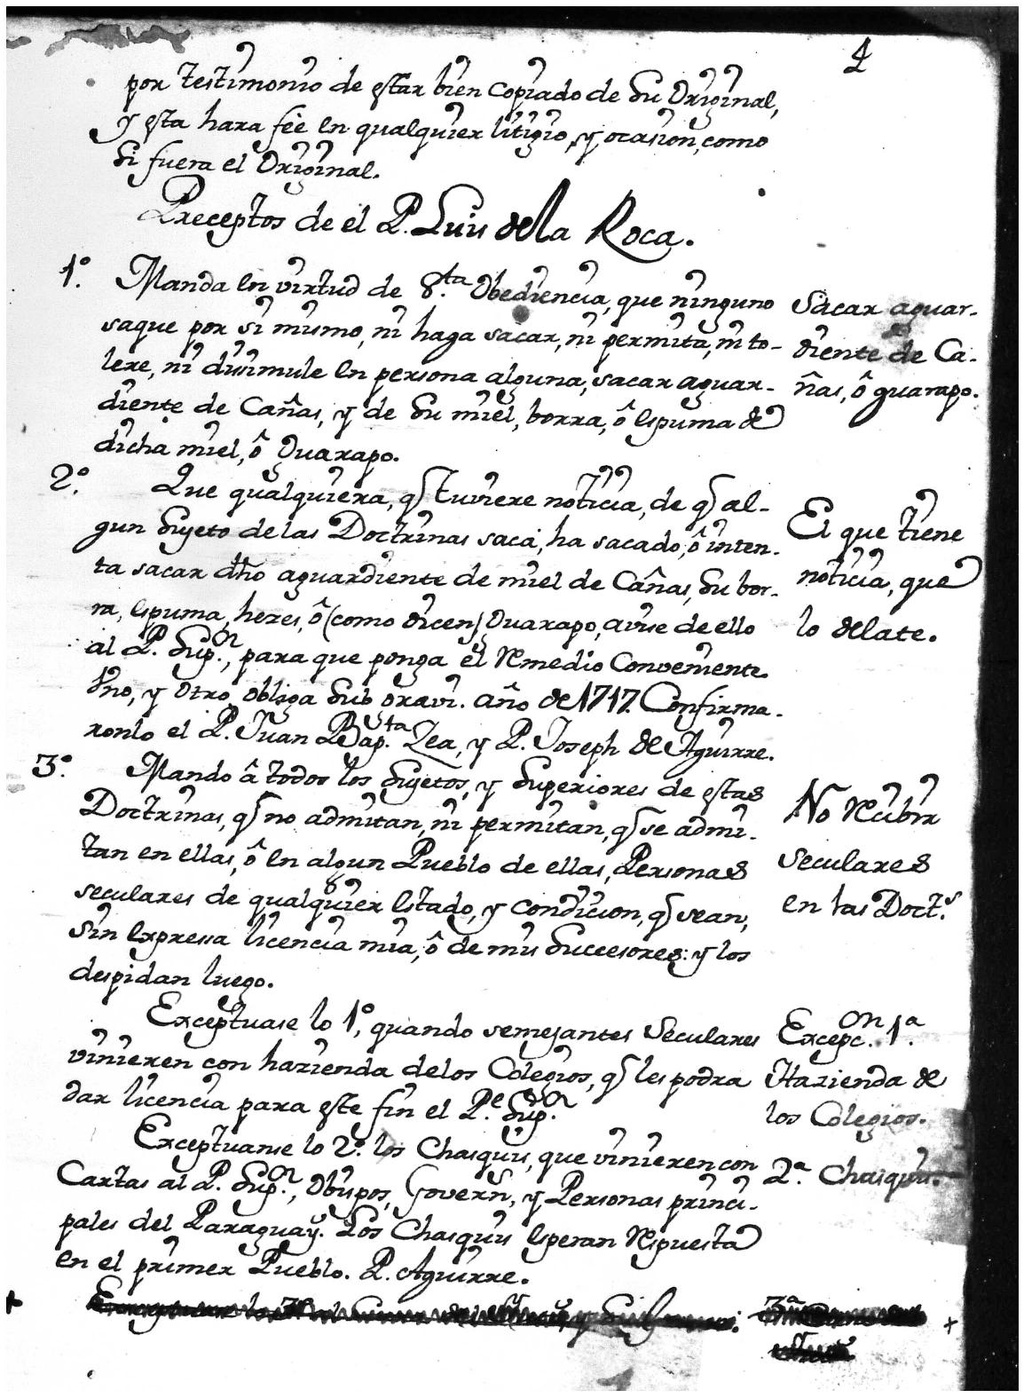 4
por testimonio de estar bien copiado de Su Original,
y esta hara feè en qualquier litigio, y ocasion, como
Si fuera el Original.
Preceptos de el P. Luis de la Roca.
1º. Manda en virtud de S.ta Obediencia, que ninguno
saque por si mismo, ni haga sacar, ni permita, ni to-
lere, ni disimule en persona alguna, sacar aguar-
diente de Cañas, y de Su miel, borra, ô espuma de
dicha miel, ô Guarapo.
Sacar aguar-
diente de Ca-
ñas, ô guarapo.
2º. Que qualquiera, q̃ tuviere noticia, de q̃ al-
gun Sujeto de las Doctrinas saca, ha sacado, ô inten-
ta sacar dho aguardiente de miel de Cañas, Su bor-
ra, espuma, hezes, ô (como dicen) Guarapo, avise de ello
al P. Sup.or, para que ponga el remedio Conveniente.
Vno, y Otro obliga Sub gravi. año de 1717. Confirma-
ronlo el P. Juan Bap.ta Zea, y P. Joseph de Aguirre.
El que tiene
noticia, que
lo delate.
3º. Mando â todos los Sujetos, y Superiores de estas
Doctrinas, q̃ no admitan, ni permitan, q̃ se admi-
tan en ellas, ô en algun Pueblo de ellas, Personas
seculares de qualquier estado, y condicion, q̃ sean,
Sin expressa licencia mia, ô de mis Successores: y los
despidan luego.
No recibir
Seculares
en las Doct.s
Exceptuase lo 1º, quando semejantes Seculares
vinieren con hazienda de los Colegios, q̃ les podra
dar licencia para este fin el P.e Sup.or
Excepc.on 1ª.
Hazienda de
los Colegios.
Exceptuanse lo 2º. los Chasquis, que vinieren con
Cartas al P. Sup.or, Obispos, Govern.s, y Personas princi-
pales del Paraguay. Los Chasquis esperan respuesta
en el primer Pueblo. P. Aguirre.
2ª. Chasquis.
3ª